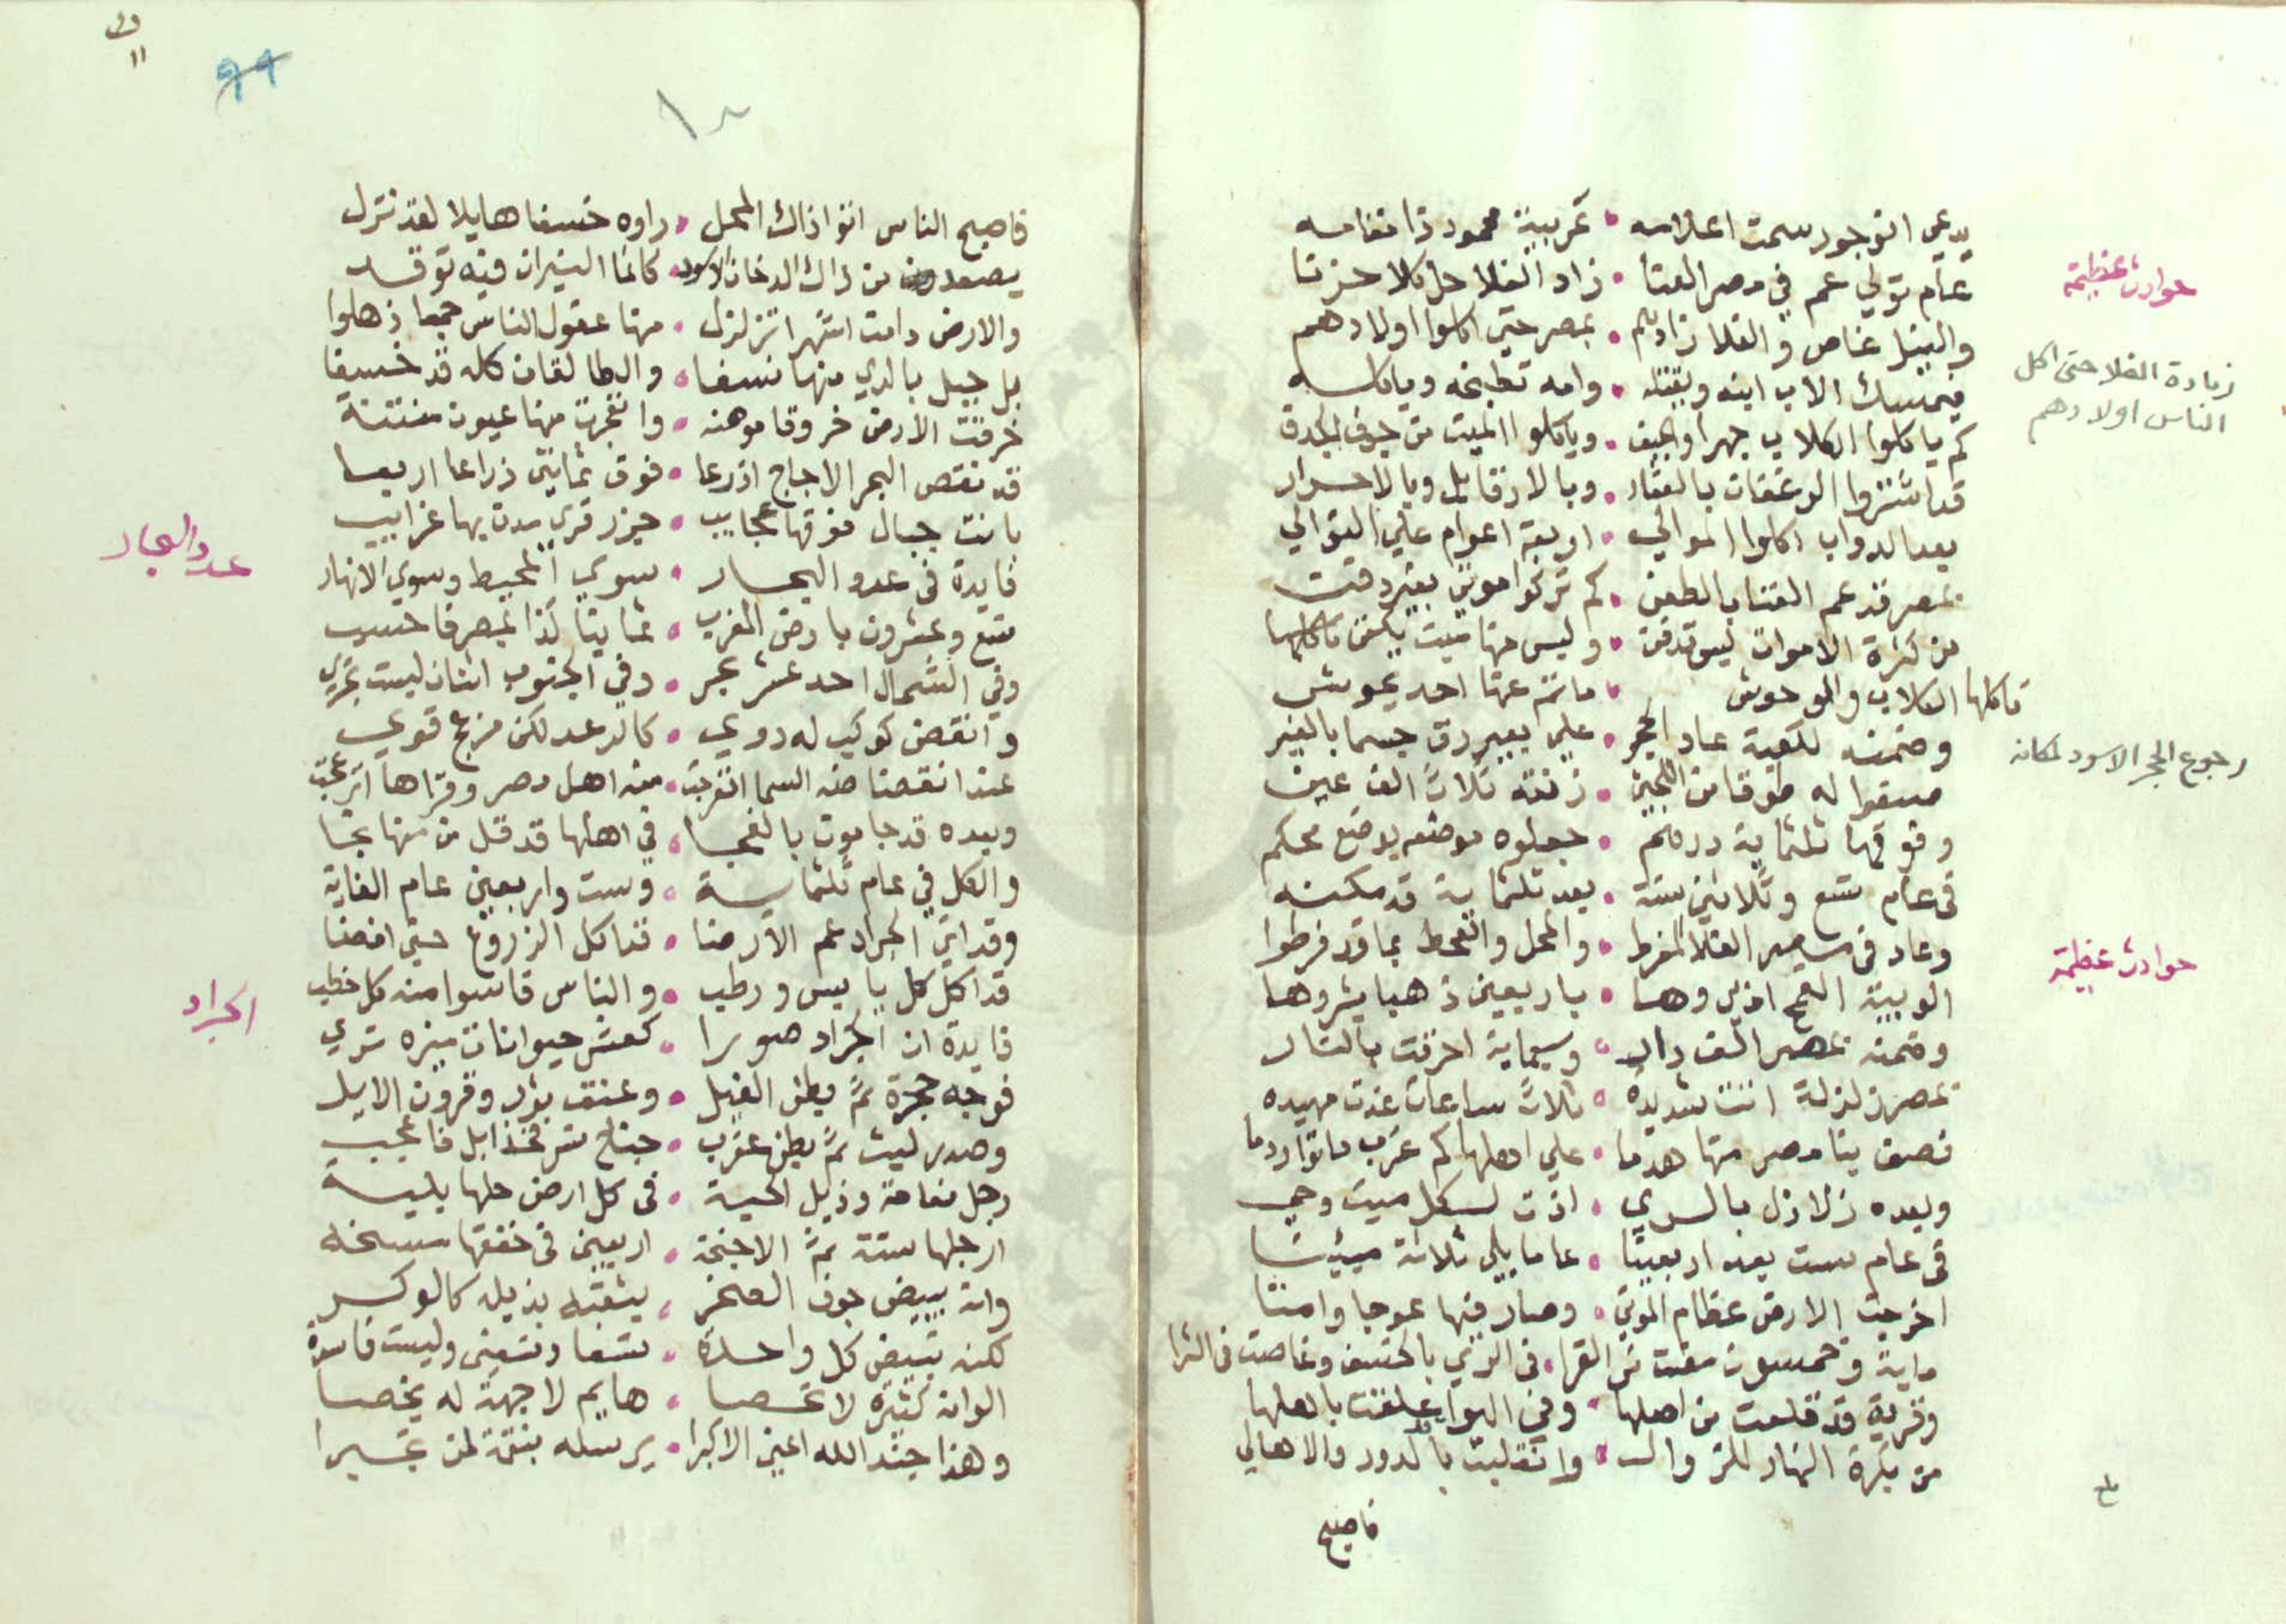 يدعي انوجور سمت اعلامه • تربية محمود ذا مقامه
حوادث عظيمة
عام تولي عم في مصر الفنا • زاد الغلا حل بلا حزنا
والنيل غاص والغلا زاد بهم • بمصر حتي اكلوا اولادهم
زيادة الغلا حتى اكل
الناس اولادهم
فيمسك الاب ابنه ويقتله • وامه تطبخه وياكله
كم ياكلوا الكلاب جهرا والجيف • وياكلوا الميت من جوف
قد اشتروا الرغفات بالعقار • وبالارقا بل وبالاحرار
بعد الدواب اكلوا الموالي • اربعة اعوام علي التوالي
بمصر قد عم الفنا بالطعن • كم تركوا موتي بغير دفن
من كثرة الاموات ليس تدفن • وليس منها ميت يكفن
تاكلها الكلاب والوحوش • ما ثم عنها احد يحوش
وضمنه للكعبة عاد الحجر • علي بعير رق جسما بالغير
رجوع الحجر الاسود لمكانه
صبغوا له طوقا من اللجين • زنته ثلاث الف عين
وفوقها ثلثماية درهم • جعلوه موضعه بوضع محكم
في عام تسع وثلاثين سنة • بعد ثلثماية قد مكنه
وعاد في مصر الغلا المفرط • والمحل والقحط بما قد فرطوا
حوادث عظيمة
الويبة القمح اذ يروها • باربعين ذهبا يشروها
وضمنه بمصر الف دار • وسبعماية احرقت بالنار
بمصر زلزلة اتت شديده • ثلاث ساعات غدت مهيده
نصف بنا مصر منها هدما • علي اهلها كم غرب ماتوا ردما
وبعده زلازل بالري • اذت لكل ميت وحي
في عام ست بعد اربعينا • عاما يلي ثلاثة ميينا
اخرجت الارض عظام الموتي • وصار فيها عوجا وامتا
ماية وخمسون مضت من القرا • في الري بالخسف وغاصت في الثرا
وقرية قد قلعت من اصلها • وفي الهوا علقت باهلها
من بكرة النهار للزوال • وانقلبت بالدور والاهالي
فاصبح
١٠
٩٩
فاصبح الناس اتوا ذاك المحل • راوه خسفا هايلا لقد نزل
يصعد من ذاك الدخان الاسود • كانما النيران فيه توقد
والارض دامت اشهرا تزلزل • منها عقول الناس جمعا ذهلوا
بل جبل بالري منها نسفا • والطالقان كله قد خسفا
خرقت الارض خروقا موهنه • وانفجرت منها عيون منتنة
قد نقص البحر الاجاج اذرعا • فوق ثمانين ذراعا اربعا
بانت جبال فوقها عجايب • جزر قري مدن بها غرايب
فايدة في عدد البحار • سوي المحيط وسوي الانهار
عدد البحار
تسع وعشرون بارض المغرب • ثمانيا كذا بمصر فاحسب
وفي الشمال احد عشر بحر • وفي الجنوب اثنان ليست تجري
وانقض كوكب له دوي • كالرعد لكن مزعج قوي
عند انقضا ضه السما انفرجت • منه اهل مصر وقراها انزعجت
وبعده قد جا موت بالفجا • في اهلها قد قل من منها نجا
والكل في عام ثلثماية • وست واربعين عام الغاية
وقد اتي الجراد عم الارضا • فتاكل الزروع حتي افضا
قد اكل كل يابس ورطب • والناس قاسوا منه كل خطب
الجراد
فايدة ان الجراد صورا • كعشر حيوانات بيزه تري
فوجه حجرة ثم بطن الفيل • وعنق ثور وقرون الايل
وصدر ليث ثم بطن عقرب • جناح نسر فخذ ابل فاعجب
رجل نعامة وذيل الحية • في كل ارض حلها بلية
ارجلها ستة ثم الاجنحة • اربعين في خفقها
وانه يبيض جوف الصخر • يثقبه بذيله كالوكر
لكنه تبيض كل واحدة • تسعا وتسعين وليست فاسدة
الوانه كثيرة لا تحصا • هايم لا جهة له يخصا
وهذا جند الله اعني الاكبرا • يرسله بنقمة لمن تجبرا